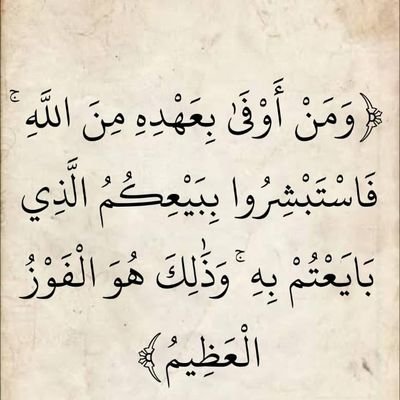 ﴿وَمَنْ أَوْفَىٰ بِعَهْدِهِ مِنَ اللَّهِ ۚ
فَاسْتَبْشِرُوا بِبَيْعِكُمُ الَّذِي
بَايَعْتُمْ بِهِ ۚ وَذَٰلِكَ هُوَ الْفَوْزُ
الْعَظِيمُ﴾